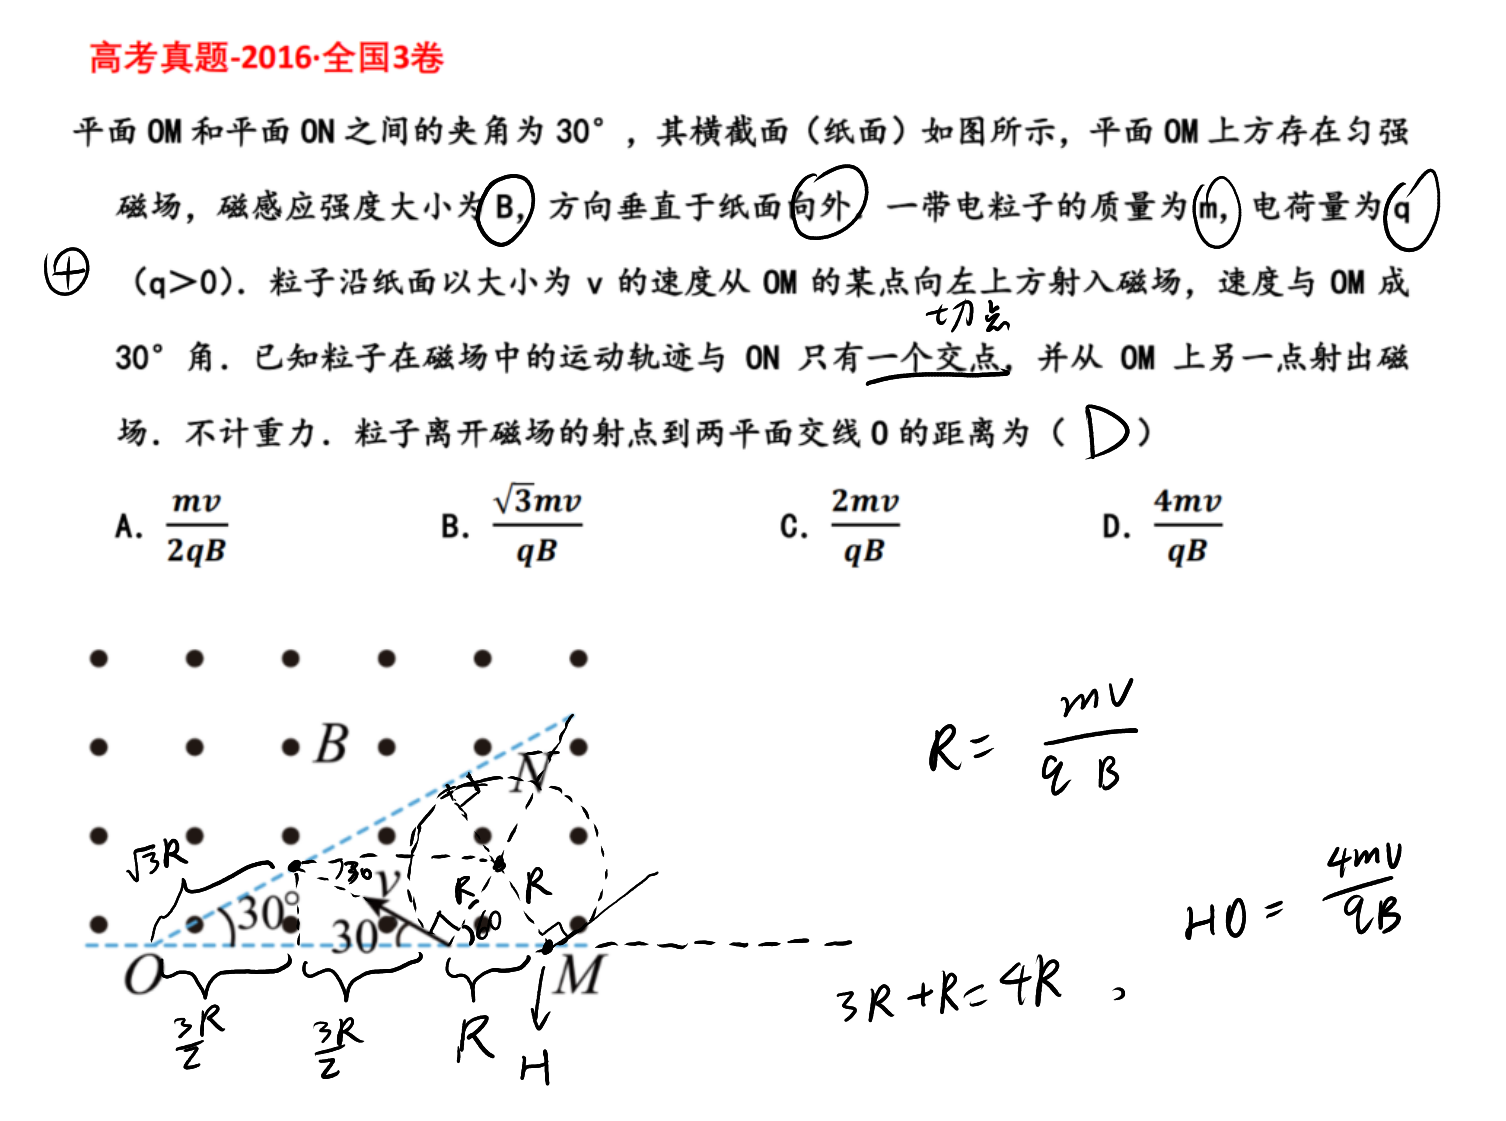 高考真题-2016·全国3卷
平面 OM 和平面 ON 之间的夹角为 30°，其横截面（纸面）如图所示，平面 OM 上方存在匀强
磁场，磁感应强度大小为 B，方向垂直于纸面向外．一带电粒子的质量为 m，电荷量为 q
⊕ （q＞0）．粒子沿纸面以大小为 v 的速度从 OM 的某点向左上方射入磁场，速度与 OM 成
切点
30°角．已知粒子在磁场中的运动轨迹与 ON 只有一个交点，并从 OM 上另一点射出磁
场．不计重力．粒子离开磁场的射点到两平面交线 O 的距离为（ D ）
A. mv/2qB B. √3mv/qB C. 2mv/qB D. 4mv/qB
B
N
R = mv/qB
√3R
30
v
R R
30° 30° 60
HO = 4mv/qB
O M
3R/2 3R/2 R H
3R+R=4R ,